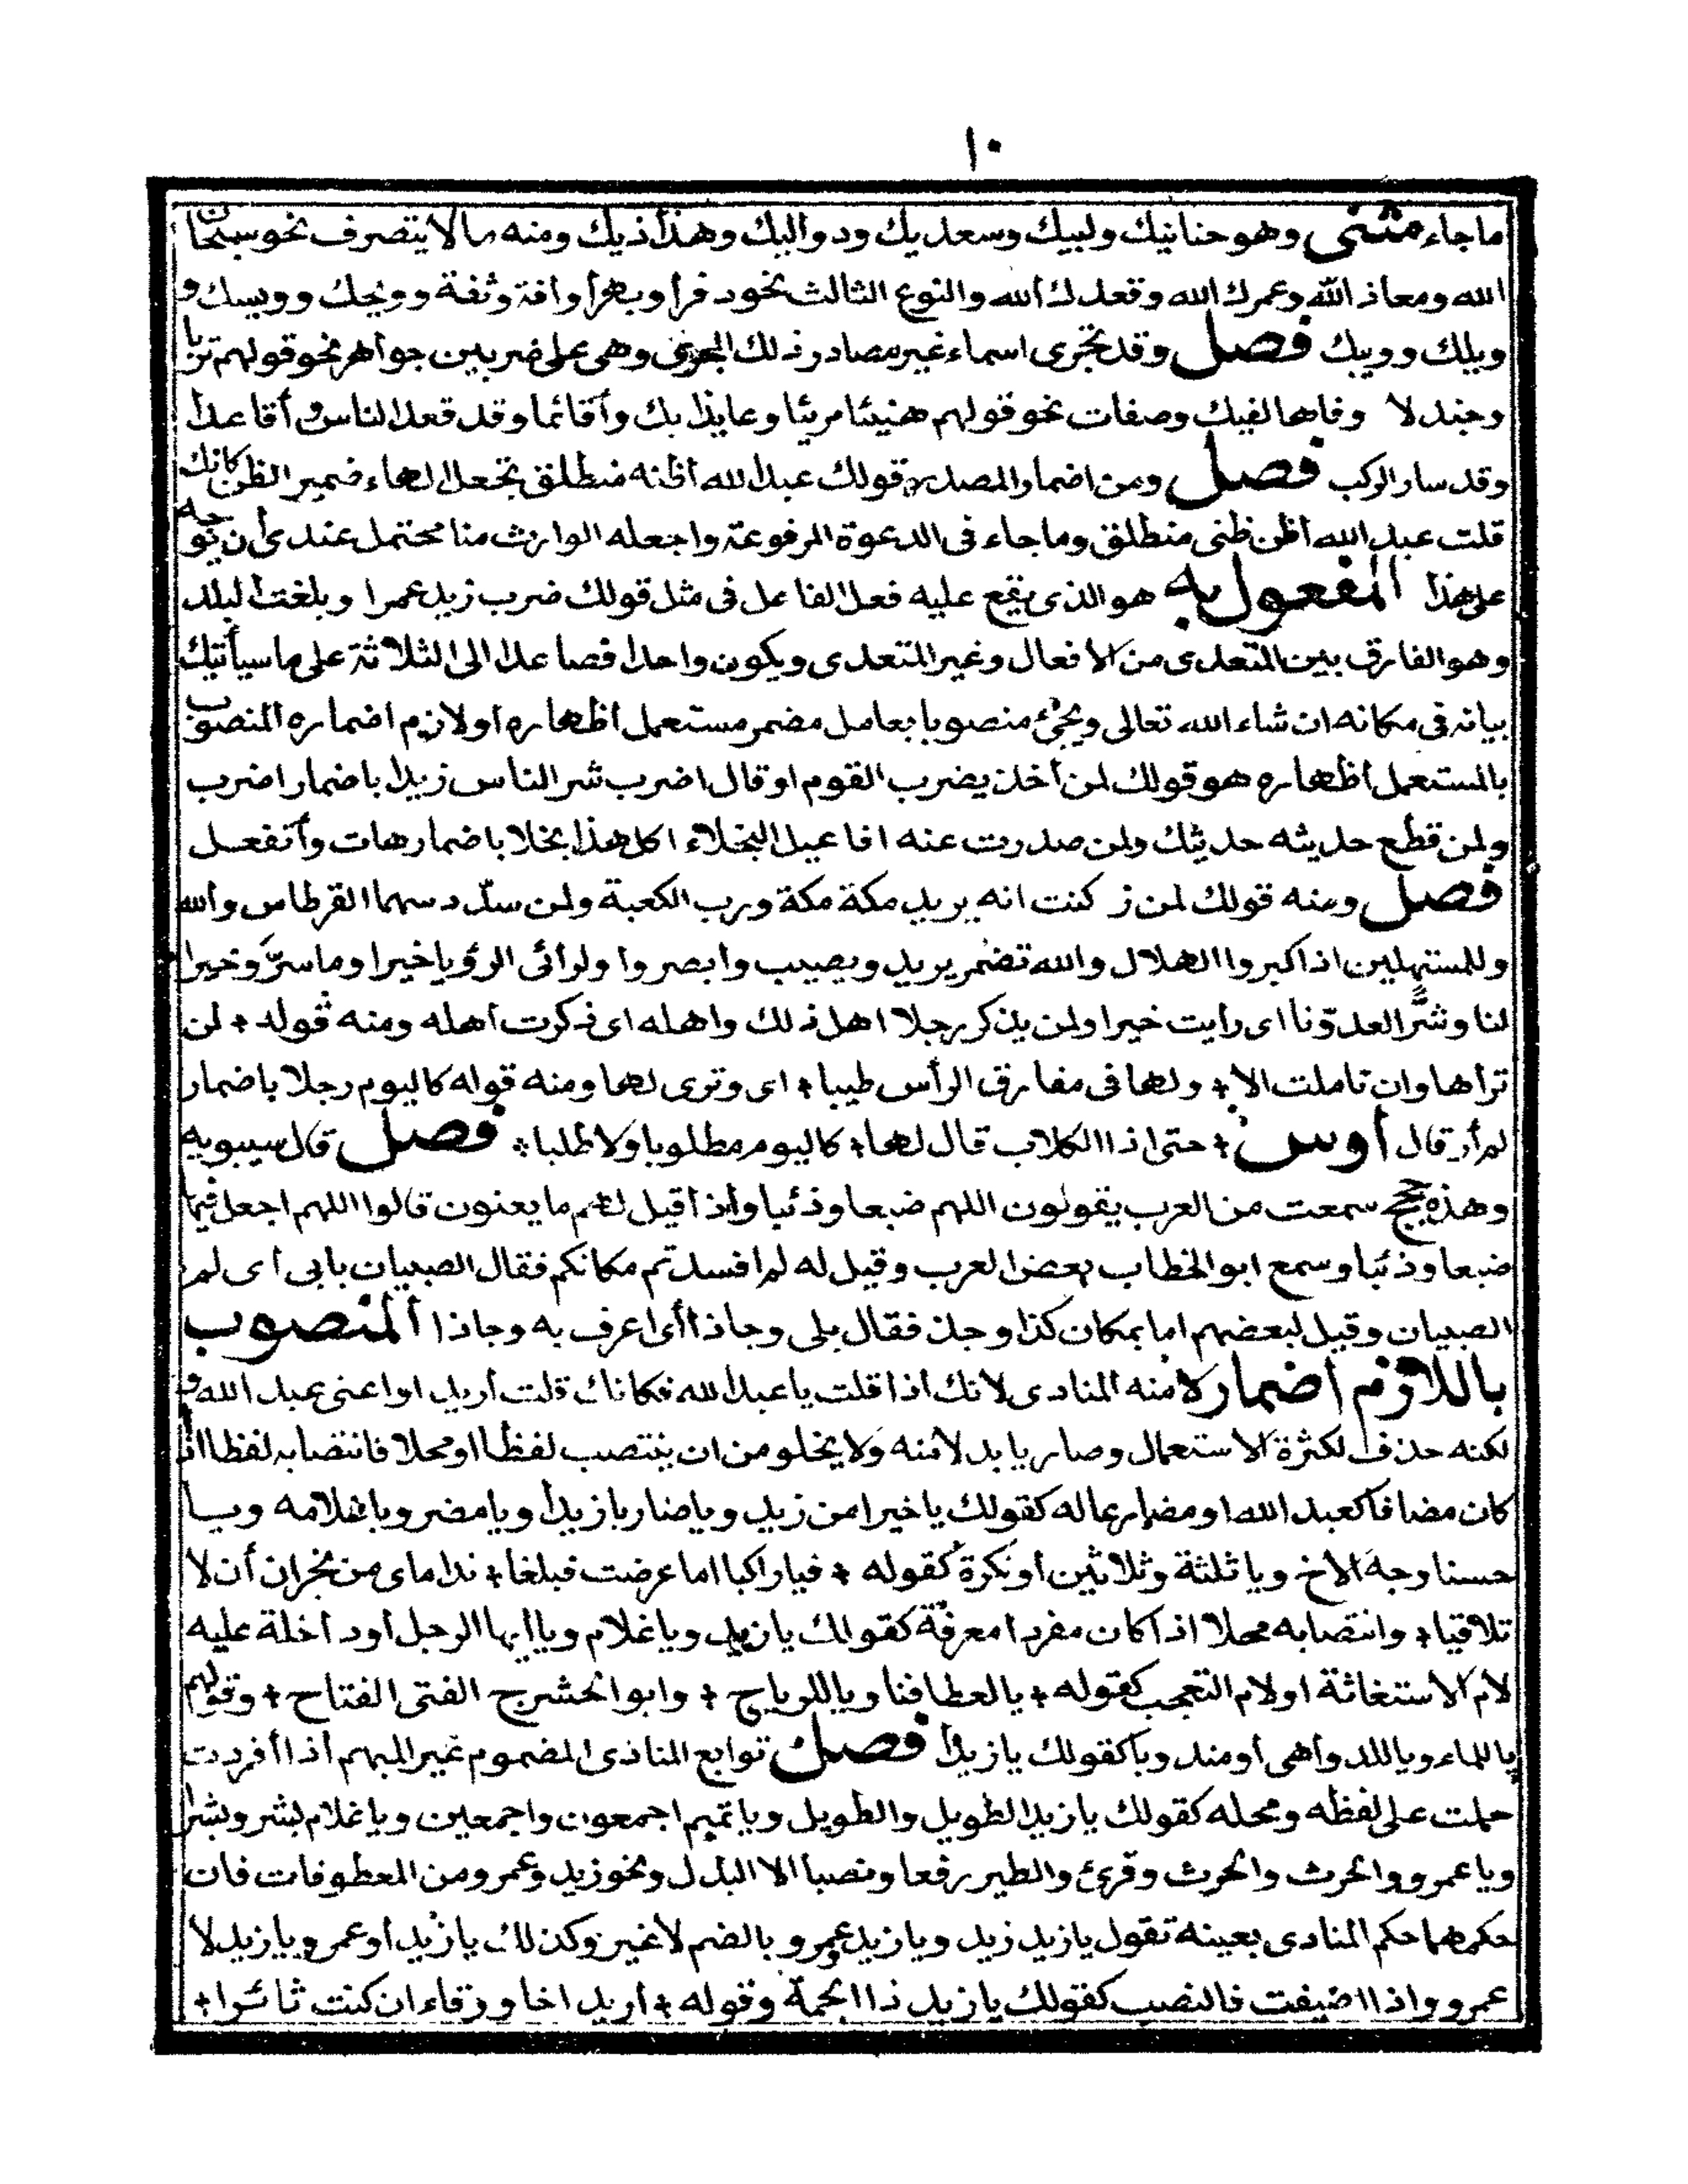 ١٠
ما جاء مثنى وهو حنانيك ولبيك وسعديك ودواليك وهذاذيك ومنه ما لا يتصرف نحو سبحان
الله ومعاذ الله وعمرك الله وقعدك الله والنوع الثالث نحو دفرا وبهرا وافة وثفة وويحك وويسك و
ويلك وويبك فصل وقد تجرى اسماء غير مصادر ذلك المجرى وهى على ضربين جواهر نحو قولهم تربا
وجندلا وفاها لفيك وصفات نحو قولهم هنيئا مريئا وعايذا بك وأقائما وقد قعد الناس وأقاعدا
وقد سار الركب فصل ومن اضمار المصدر قولك عبد الله اظنه منطلق تجعل الهاء ضمير الظن كانك
قلت عبد الله اظن ظنى منطلق وما جاء فى الدعوة المرفوعة واجعله الوارث منا محتمل عندى أن توجه
على هذا المفعول به هو الذى يقع عليه فعل الفاعل فى مثل قولك ضرب زيد عمرا وبلغت البلد
وهو الفارق بين المتعدى من الافعال وغير المتعدى ويكون واحدا فصاعدا الى الثلاثة على ما سيأتيك
بيانه فى مكانه ان شاء الله تعالى ويجئ منصوبا بعامل مضمر مستعمل اظهاره او لازم اضماره المنصوب
بالمستعمل اظهاره هو قولك لمن أخذ يضرب القوم او قال اضرب شر الناس زيدا باضمار اضرب
ولمن قطع حديثه حديثك ولمن صدرت عنه افاعيل البخلاء اكل هذا بخلا باضمار هات وأتفعل
فصل ومنه قولك لمن زكنت انه يريد مكة مكة ورب الكعبة ولمن سدّد سهما القرطاس والله
وللمستهلين اذا كبروا الهلال والله تضمر يريد ويصيب وأبصروا ولرائى الرؤيا خيرا وما سرّ وخيرا
لنا وشرّا لعدوّنا اى رايت خيرا ولمن يذكر رجلا اهل ذلك واهله اى ذكرت اهله ومنه قوله ÷ لن
تراها وان تاملت الا ÷ ولها فى مفارق الرأس طيبا ÷ اى وترى لها ومنه قوله كاليوم رجلا باضمار
لم أر قال أوس ÷ حتى اذا الكلاب قال لها ÷ كاليوم مطلوبا ولا طلبا ÷ فصل قال سيبويه
وهذه حجج سمعت من العرب يقولون اللهم ضبعا وذئبا واذا قيل لهم ما يعنون قالوا اللهم اجعل فيها
ضبعا وذئبا وسمع ابو الخطاب بعض العرب وقيل له لم افسدتم مكانكم فقال الصبيان بابى أى لم
الصبيان وقيل لبعضهم اما بمكان كذا وجذ فقال بلى وجاذا أى اعرف به وجاذا المنصوب
باللازم اضماره منه المنادى لانك اذا قلت يا عبد الله فكانك قلت أريد او اعنى عبد الله و
لكنه حذف لكثرة الاستعمال وصار يا بدلا منه ولا يخلو من ان ينتصب لفظا او محلا فانتصابه لفظا اذا
كان مضافا كعبد الله او مضارعا له كقولك يا خيرا من زيد ويا ضاربا زيدا ويا مضروبا غلامه ويا
حسنا وجه الاخ ويا ثلثة وثلاثين او نكرة كقوله ÷ فيا راكبا اما عرضت فبلغا ÷ نداماى من نجران أن لا
تلاقيا ÷ وانتصابه محلا اذا كان مفردا معرفة كقولك يا زيد ويا غلام ويا ايها الرجل أو داخلة عليه
لام الاستغاثة او لام التعجب كقوله ÷ يا لعطافنا ويا للرياح ÷ وابو الحشرج الفتى الفتاح ÷ وقولهم
يا للماء ويا للدواهى أو مندوبا كقولك يا زيداه فصل توابع المنادى المضموم غير المبهم اذا أفردت
حملت على لفظه ومحله كقولك يا زيد الطويل والطويل ويا تميم اجمعون واجمعين ويا غلام بشر وبشرا
ويا عمرو والحرث والحرث وقرئ والطير رفعا ونصبا الا البدل ونحو زيد وعمرو من المعطوفات فان
حكمهما حكم المنادى بعينه تقول يا زيد زيد ويا زيد وعمرو بالضم لا غير وكذلك يا زيد أو عمرو ويا زيد لا
عمرو واذا اضيفت فالنصب كقولك يا زيد ذا الجمة وقوله ÷ أزيد اخا ورقاء ان كنت ثائرا ÷